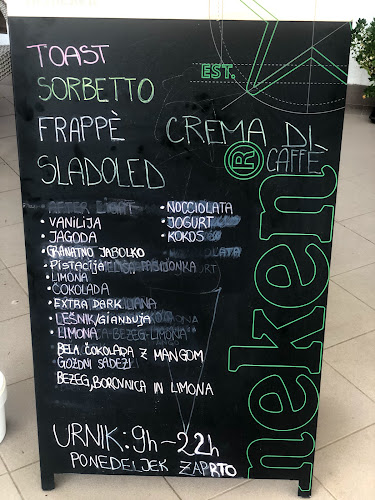 TOAST
SORBETTO
FRAPPÈ
SLADOLED
EST.
CREMA DI
CAFFÈ
AFTER LIGHT
• VANILIJA
• JAGODA
• GRANATNO JABOLKO
• PISTACIJA
• LIMONA
• ČOKOLADA
• EXTRA DARK
• LEŠNIK/GIANDUJA
• LIMONA
BELA ČOKOLADA Z MANGOM
GOZDNI SADEŽI
BEZEG, BOROVNICA IN LIMONA
• NOCCIOLATA
• JOGURT
• KOKOS
URNIK: 9h-22h
PONEDELJEK ZAPRTO
neken®